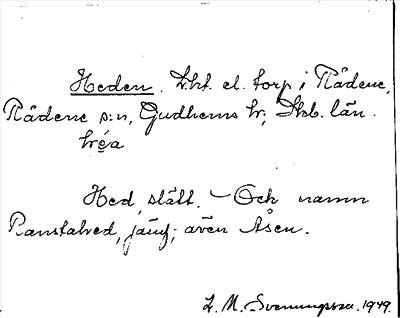 Heden. Lht. el. torp i Rådene,
Rådene s:n, Gudhems hr; Skb. län.
hréa
Hed, slätt. – Och namn
Ranstahed, jämf; även Åsen.
L. M. Svenungsson. 1949.